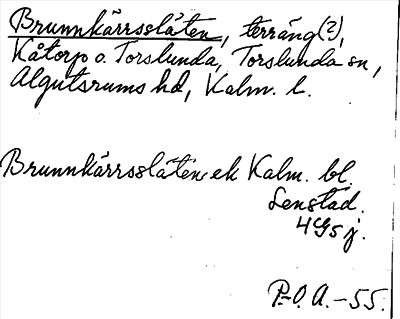 Brunnkärrsslåten, terräng(?),
Kåtorp o. Torslunda, Torslunda sn,
Algutsrums hd, Kalm. l.
Brunnkärrsslåten ek Kalm. bl.
Lenstad.
4G5j.
P.-O. A. - 55.